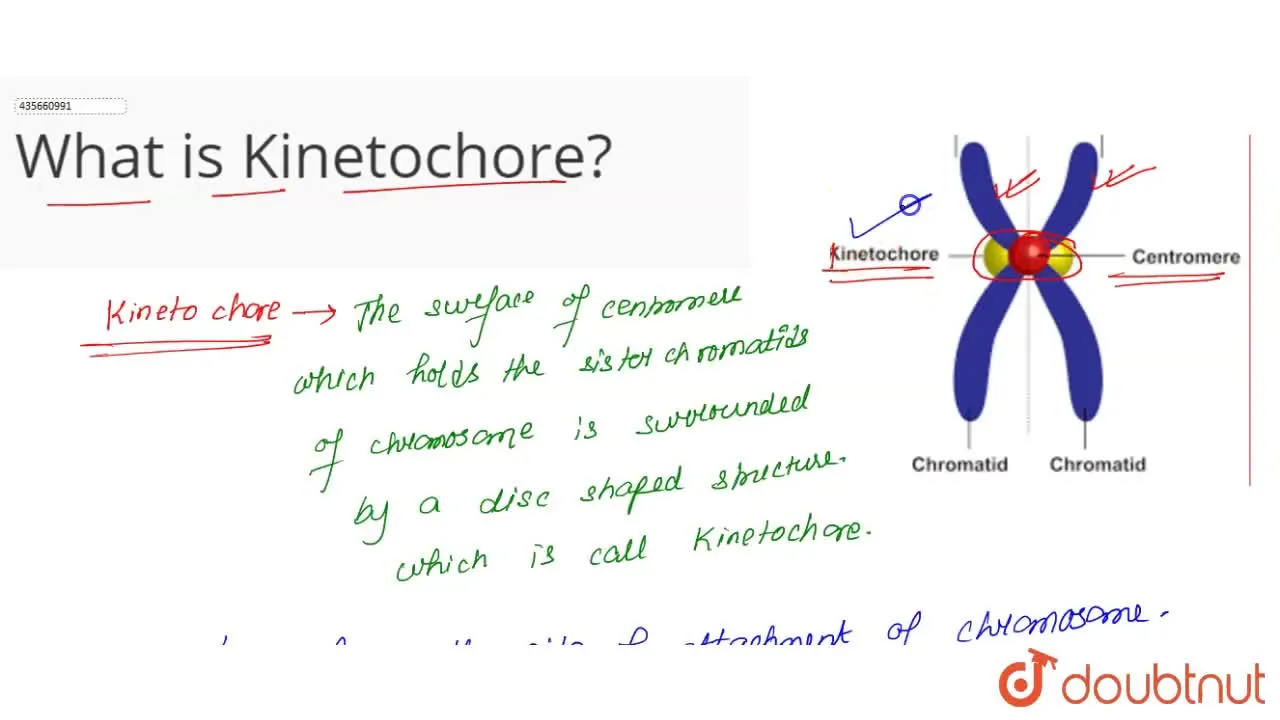 435660991
What is Kinetochore?
Kinetochore
Centromere
Chromatid
Chromatid
Kineto chore → The surface of centromere
which holds the sister chromatids
of chromosome is surrounded
by a disc shaped structure.
which is call Kinetochore.
of attachment of chromosome.
doubtnut